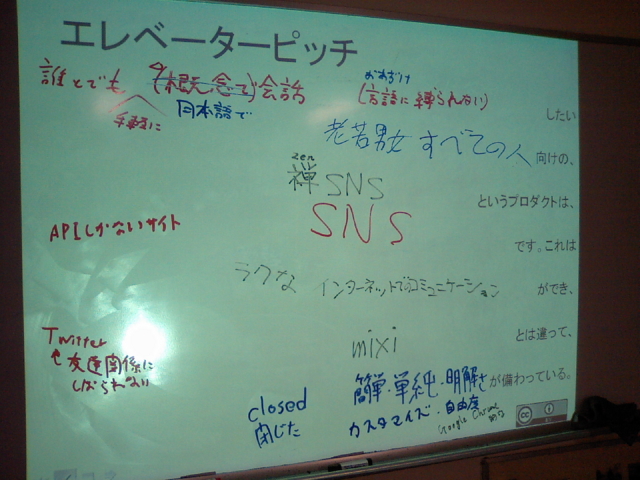 エレベーターピッチ
誰とでも (概念で)会話 (言語に縛られない) したい
おあずけ
手軽に 日本語で
老若男女 すべての人 向けの、
zen
禅 SNS というプロダクトは、
SNS
APIしかないサイト です。これは
ラクな インターネットでのコミュニケーション ができ、
Twitter
mixi とは違って、
友達関係に
しばられない
簡単・単純・明解さ が備わっている。
closed カスタマイズ・自由度
閉じた Google Chrome
cc